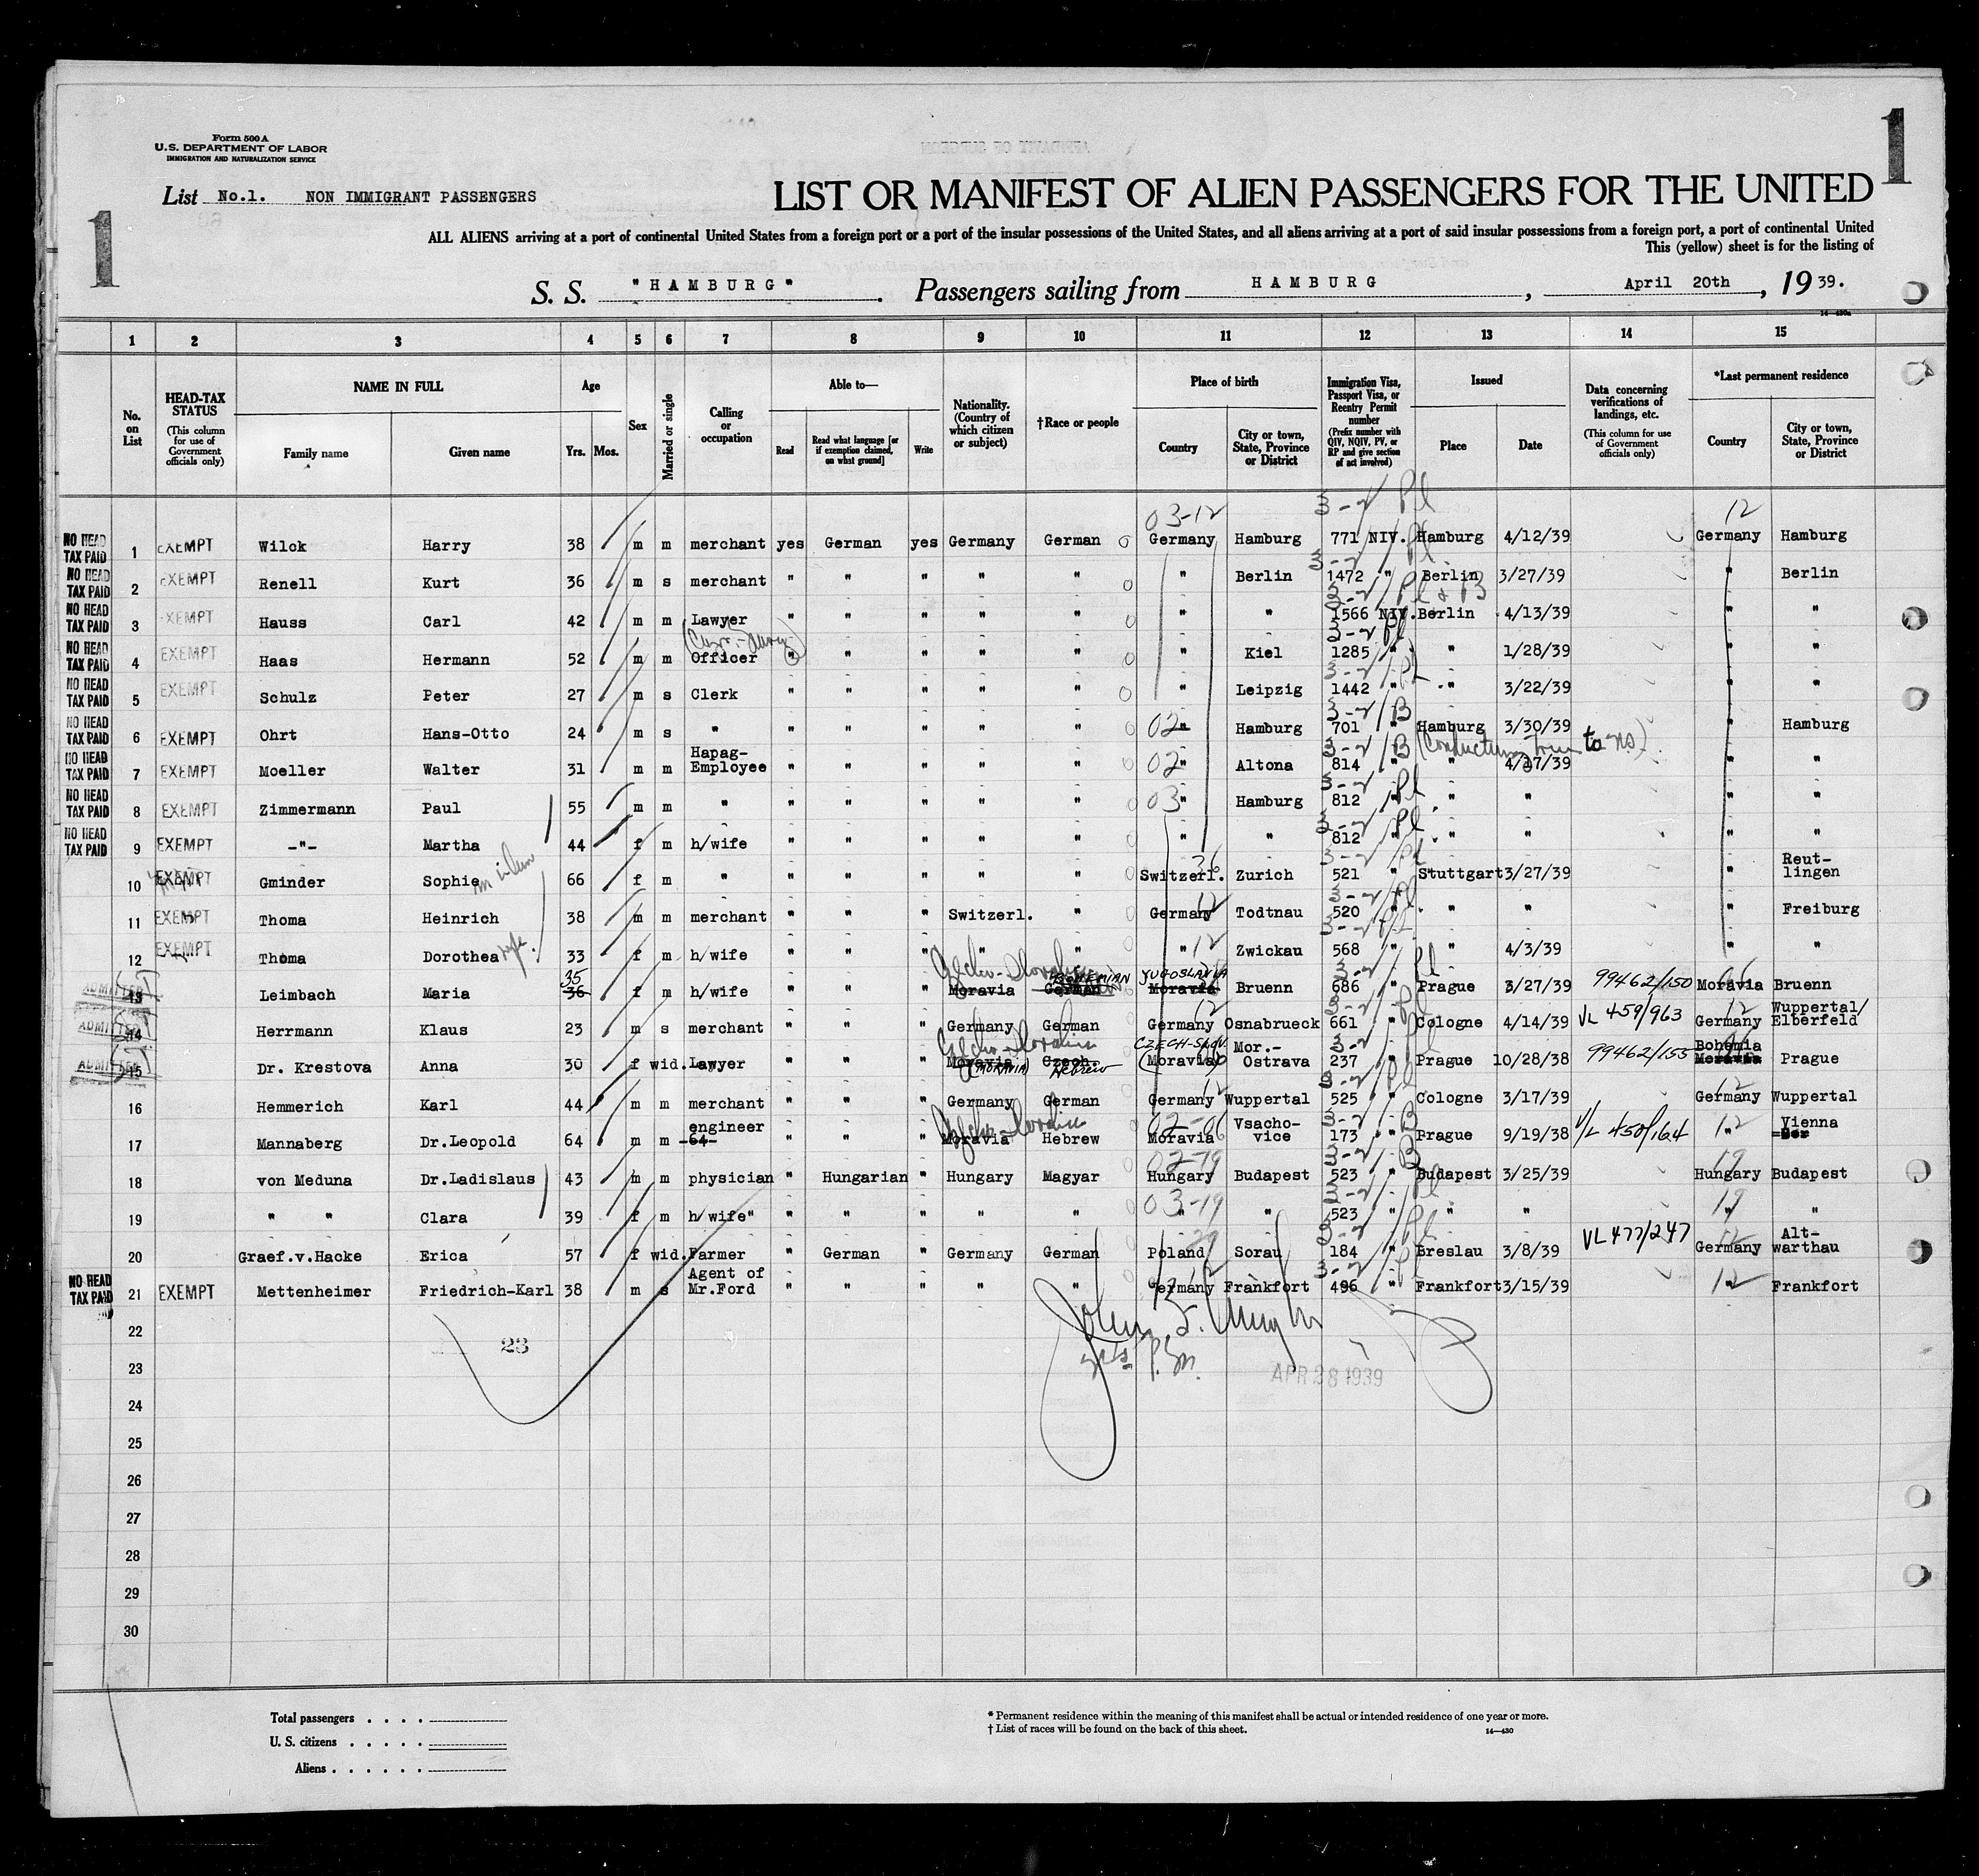 1
Form 500 A
U.S. DEPARTMENT OF LABOR
IMMIGRATION AND NATURALIZATION SERVICE
List No.1. NON IMMIGRANT PASSENGERS
LIST OR MANIFEST OF ALIEN PASSENGERS FOR THE UNITED
1
ALL ALIENS arriving at a port of continental United States from a foreign port or a port of the insular possessions of the United States, and all aliens arriving at a port of said insular possessions from a foreign port, a port of continental United
This (yellow) sheet is for the listing of
S. S. "HAMBURG". Passengers sailing from HAMBURG, April 20th, 19 39.
1 2 3 4 5 6 7 8 9 10 11 12 13 14 15
No. on List
HEAD-TAX STATUS (This column for use of Government officials only)
NAME IN FULL Family name Given name
Age Yrs. Mos.
Sex
Married or single
Calling or occupation
Able to— Read Read what language [or if exemption claimed, on what ground] Write
Nationality. (Country of which citizen or subject)
†Race or people
Place of birth Country City or town, State, Province or District
Immigration Visa, Passport Visa, or Reentry Permit number (Prefix number with QIV, NQIV, PV, or RP and give section of act involved)
Issued Place Date
Data concerning verifications of landings, etc. (This column for use of Government officials only)
*Last permanent residence Country City or town, State, Province or District
NO HEAD TAX PAID 1 EXEMPT Wilck Harry 38 m m merchant yes German yes Germany German 03-12 Germany Hamburg 771 NIV. Hamburg 4/12/39 12 Germany Hamburg
NO HEAD TAX PAID 2 EXEMPT Renell Kurt 36 m s merchant " " " " " " Berlin 1472 " Berlin 3/27/39 " Berlin
NO HEAD TAX PAID 3 EXEMPT Hauss Carl 42 m m Lawyer " " " " " " " 1566 NIV. Berlin 4/13/39 " "
NO HEAD TAX PAID 4 EXEMPT Haas Hermann 52 m m Officer " " " " " " Kiel 1285 " " 1/28/39 " "
NO HEAD TAX PAID 5 EXEMPT Schulz Peter 27 m s Clerk " " " " " " Leipzig 1442 " " 3/22/39 " "
NO HEAD TAX PAID 6 EXEMPT Ohrt Hans-Otto 24 m s " " " " " " 02 " Hamburg 701 " Hamburg 3/30/39 " Hamburg
NO HEAD TAX PAID 7 EXEMPT Moeller Walter 31 m m Hapag-Employee " " " " " 02 " Altona 814 " " 4/17/39 " "
NO HEAD TAX PAID 8 EXEMPT Zimmermann Paul 55 m m " " " " " " 03 " Hamburg 812 " " " " "
NO HEAD TAX PAID 9 EXEMPT -"- Martha 44 f m h/wife " " " " " " " 812 " " " " "
10 EXEMPT Gminder Sophie 66 f m " " " " " " Switzerl. Zurich 521 " Stuttgart 3/27/39 " Reut-lingen
11 EXEMPT Thoma Heinrich 38 m m merchant " " " Switzerl. " Germany 12 Todtnau 520 " " " " Freiburg
12 EXEMPT Thoma Dorothea wife 33 f m h/wife " " " " " " 12 Zwickau 568 " " 4/3/39 " "
ADMITTED 13 Leimbach Maria 35 36 f m h/wife " " " Czecho-Slovakia Moravia BOHEMIAN German YUGOSLAVIA Moravia Bruenn 686 " Prague 3/27/39 99462/150 Moravia Bruenn
ADMITTED 14 Herrmann Klaus 23 m s merchant " " " Germany German Germany 12 Osnabrueck 661 " Cologne 4/14/39 VL 459/963 Germany 12 Wuppertal/Elberfeld
ADMITTED 15 Dr. Krestova Anna 30 f wid. Lawyer " " " Czecho-Slovakia Moravia (MORAVIA) Czech. Hebrew CZECH-SLOV. (Moravia) Mor.-Ostrava 237 " Prague 10/28/38 99462/155 Bohemia Moravia Prague
16 Hemmerich Karl 44 m m merchant " " " Germany German Germany 12 Wuppertal 525 " Cologne 3/17/39 Germany 12 Wuppertal
17 Mannaberg Dr.Leopold 64 m m engineer -64- " " " Czecho-Slovakia Moravia Hebrew 02-06 Moravia Vsacho-vice 173 " Prague 9/19/38 V/L 450/164 12 " Vienna
18 von Meduna Dr.Ladislaus 43 m m physician " Hungarian " Hungary Magyar 02-19 Hungary Budapest 523 " Budapest 3/25/39 19 Hungary Budapest
19 " " Clara 39 f m h/wife" " " " " " 03-19 " " 523 " " " 19 " "
20 Graef.v.Hacke Erica 57 f wid. Farmer " German " Germany German Poland Sorau 184 " Breslau 3/8/39 VL 477/247 Germany 12 Alt-warthau
NO HEAD TAX PAID 21 EXEMPT Mettenheimer Friedrich-Karl 38 m s Agent of Mr.Ford " " " " " Germany 12 Frankfort 496 " Frankfort 3/15/39 12 " Frankfort
22
23
23
APR 28 1939
24
25
26
27
28
29
30
Total passengers
U. S. citizens
Aliens
* Permanent residence within the meaning of this manifest shall be actual or intended residence of one year or more.
† List of races will be found on the back of this sheet.
14—430